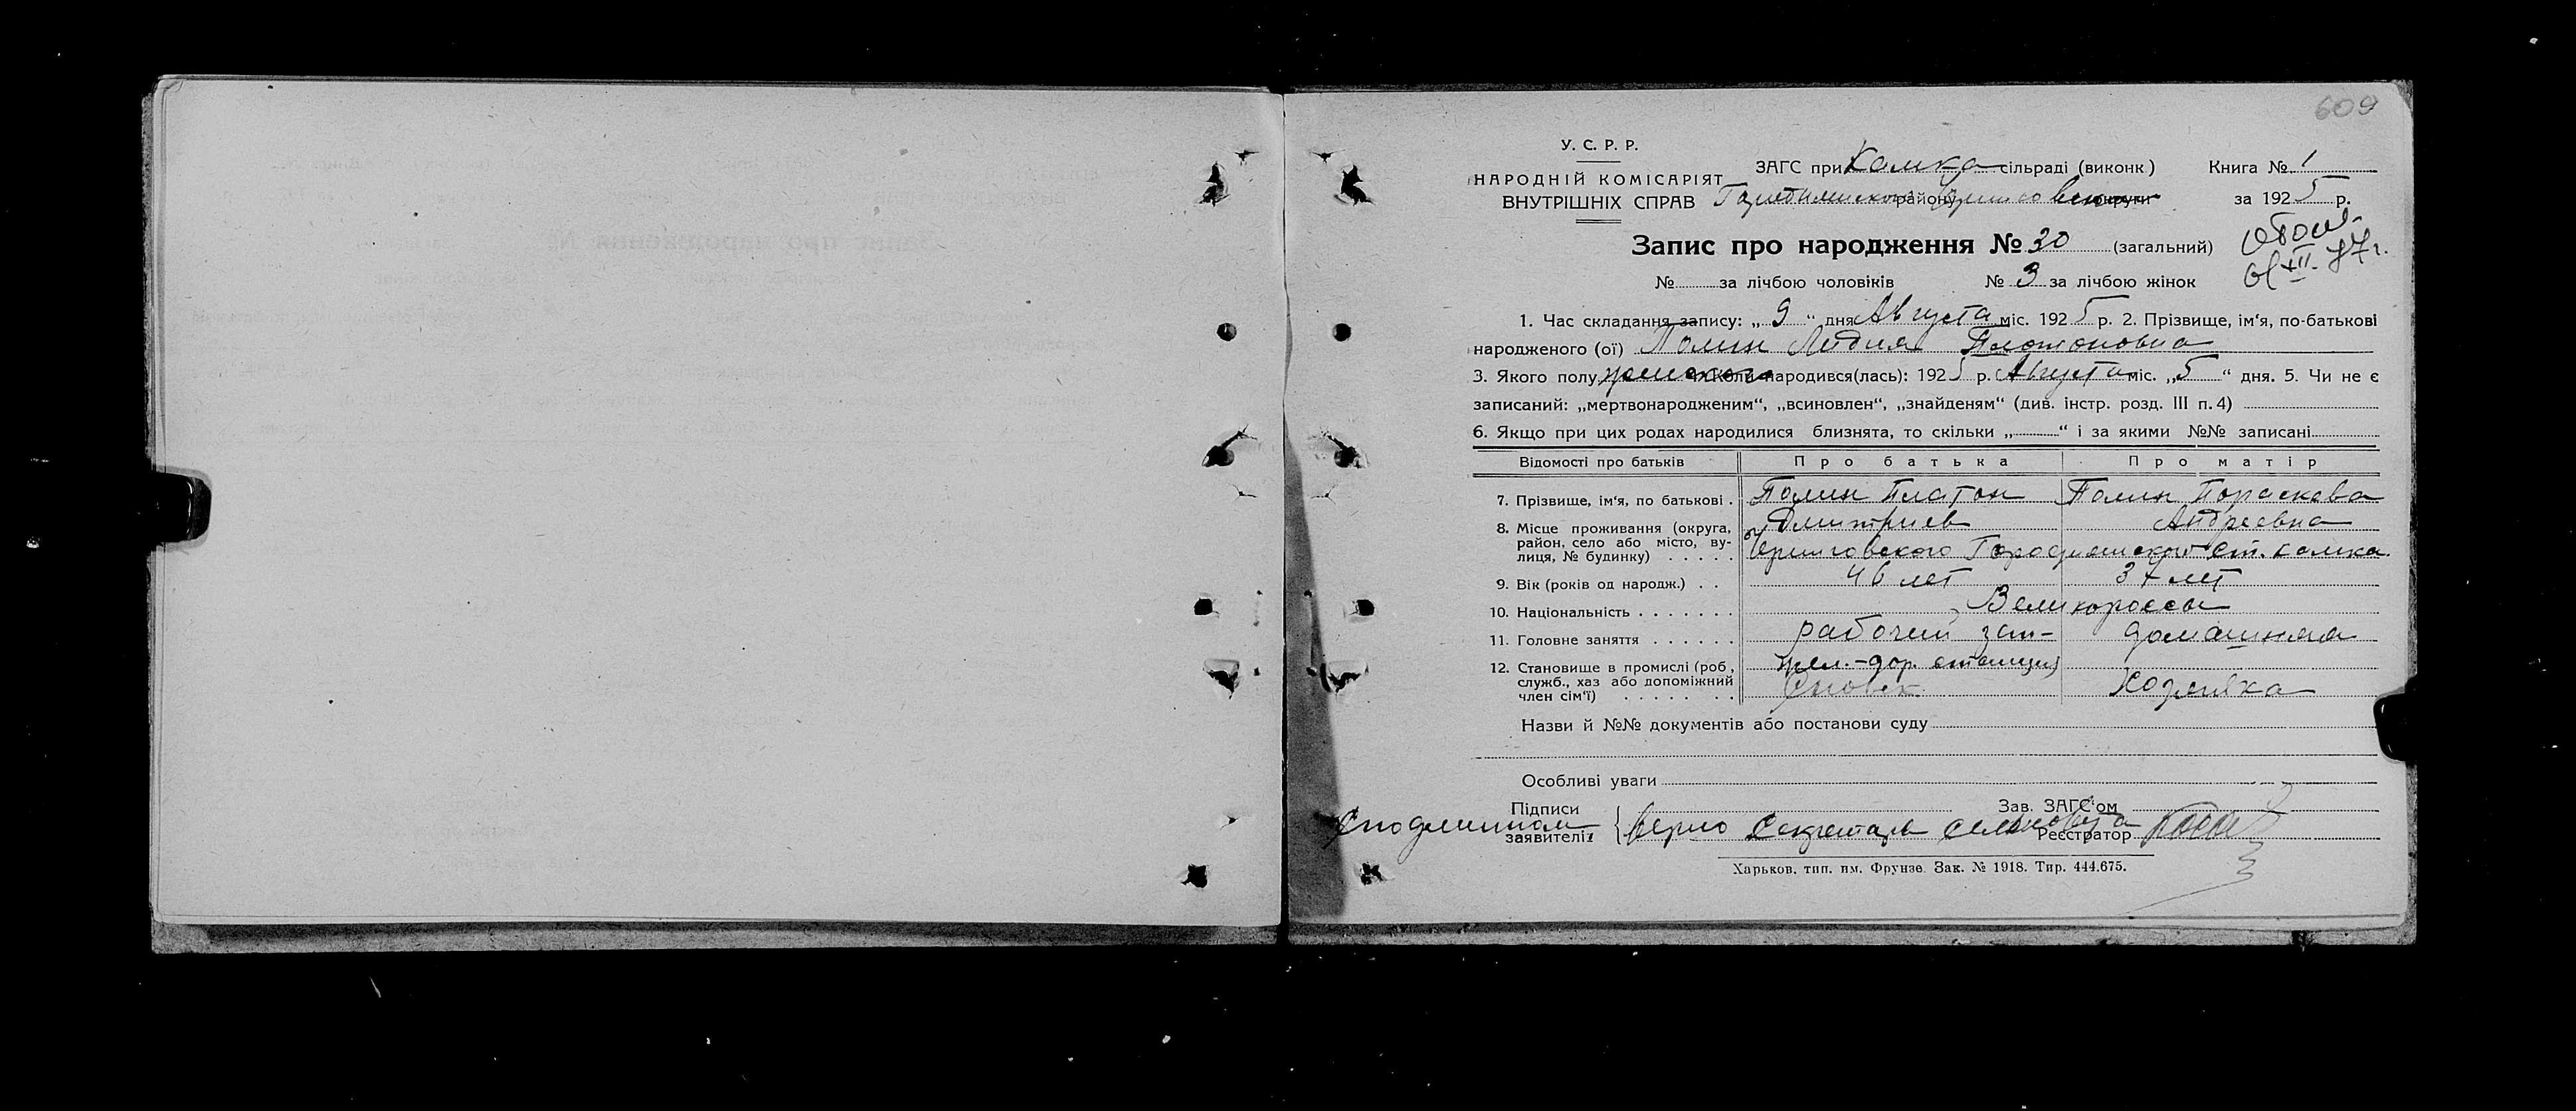 609
У. С. Р. Р.
НАРОДНІЙ КОМІСАРІЯТ
ВНУТРІШНІХ СПРАВ
ЗАГС при Камка сільраді (виконк)
району округи
Книга № 1
за 1925 р.
Запис про народження № 30 (загальний)
XII.
№ за лічбою чоловіків № 3 за лічбою жінок
1. Час складання запису: „ 9 “ дня Августа міс. 1925 р. 2. Прізвище, ім'я, по-батькові
народженого (ої) Полин Лидия Платоновна
3. Якого полу женского 4. Коли народився(лась): 1925 р. Августа міс. „5“ дня. 5. Чи не є
записаний: „мертвонародженим“, „всиновлен“, „знайденям“ (див. інстр. розд. III п. 4)
6. Якщо при цих родах народилися близнята, то скільки „ “ і за якими №№ записані
Відомості про батьків Про батька Про матір
7. Прізвище, ім'я, по батькові . Полин Платон Полин Параскева
Дмитриев Андреевна
8. Місце проживання (округа,
район, село або місто, ву-
лиця, № будинку) . . . . . ст. Камка
9. Вік (років од народж.) . . 46 лет 37 лет
10. Національність . . . . . . . Великороссы
11. Головне заняття . . . . . . рабочий домашняя
жел.-дор. станция
12. Становище в промислі (роб,
служб., хаз або допоміжний
член сім'ї) . . . . . . . Сновск Хозяйка
Назви й №№ документів або постанови суду
Особливі уваги
Підписи
заявителі:
Зав. ЗАГС'ом
С подлинным верно Секретарь сельсовета
Реєстратор
Харьков, тип. им. Фрунзе. Зак. № 1918. Тир. 444.675.